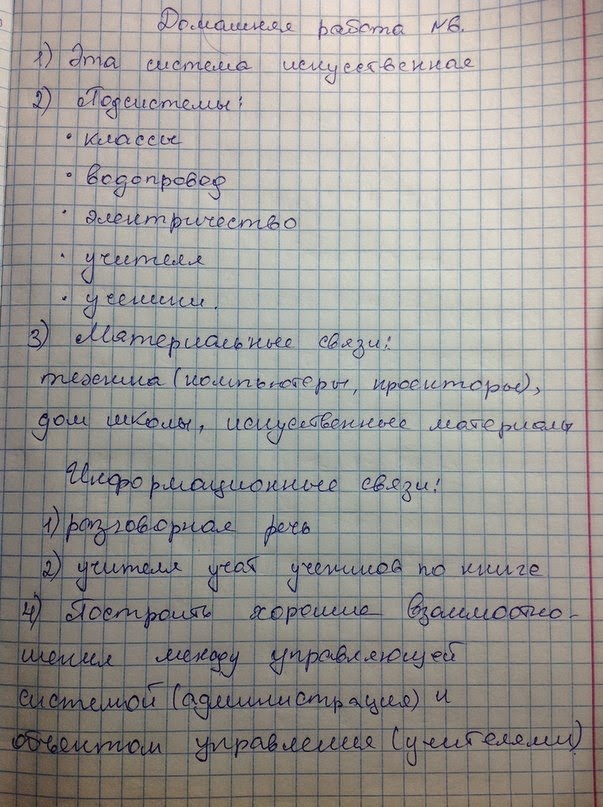 Домашняя работа №6.
1) Эта система искуственная
2) Подсистемы:
• классы
• водопровод
• электричество
• учителя
• ученики.
3) Материальные связи:
техника (компьютеры, проекторы),
дом школы, искуственные материалы
Информационные связи:
1) разговорная речь
2) учителя учат учеников по книге
4) Построить хорошие взаимоотно-
шения между управляющей
системой (администрация) и
объектом управления (учителями)